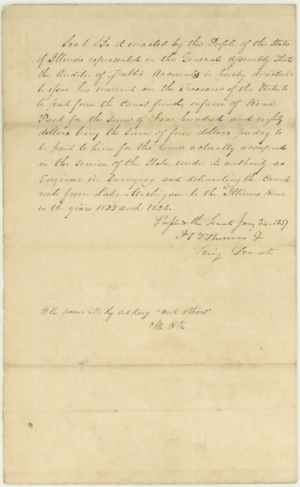 Sec 1. Be it enacted by the People of the State
of Illinois represented in the General Assembly That
the Auditor of Public Accounts is hereby directed
to issue his warrant on the Treasurer of the State to
be paid from the Canal fund, in favor of Rene
Paul for the sum of Four hundred and eighty
dollars, being the sum of four dollars per day to
be paid to him for the time actually occupied
in the service of the State under its authority as
Engineer in Surveying and estimating the Canal
route from Lake Michigan to the Illinois River
in the years 1823 and 1824.
Passed the Senate Jany 24. 1837
Thomas Jr
Senate
by adding "and others"